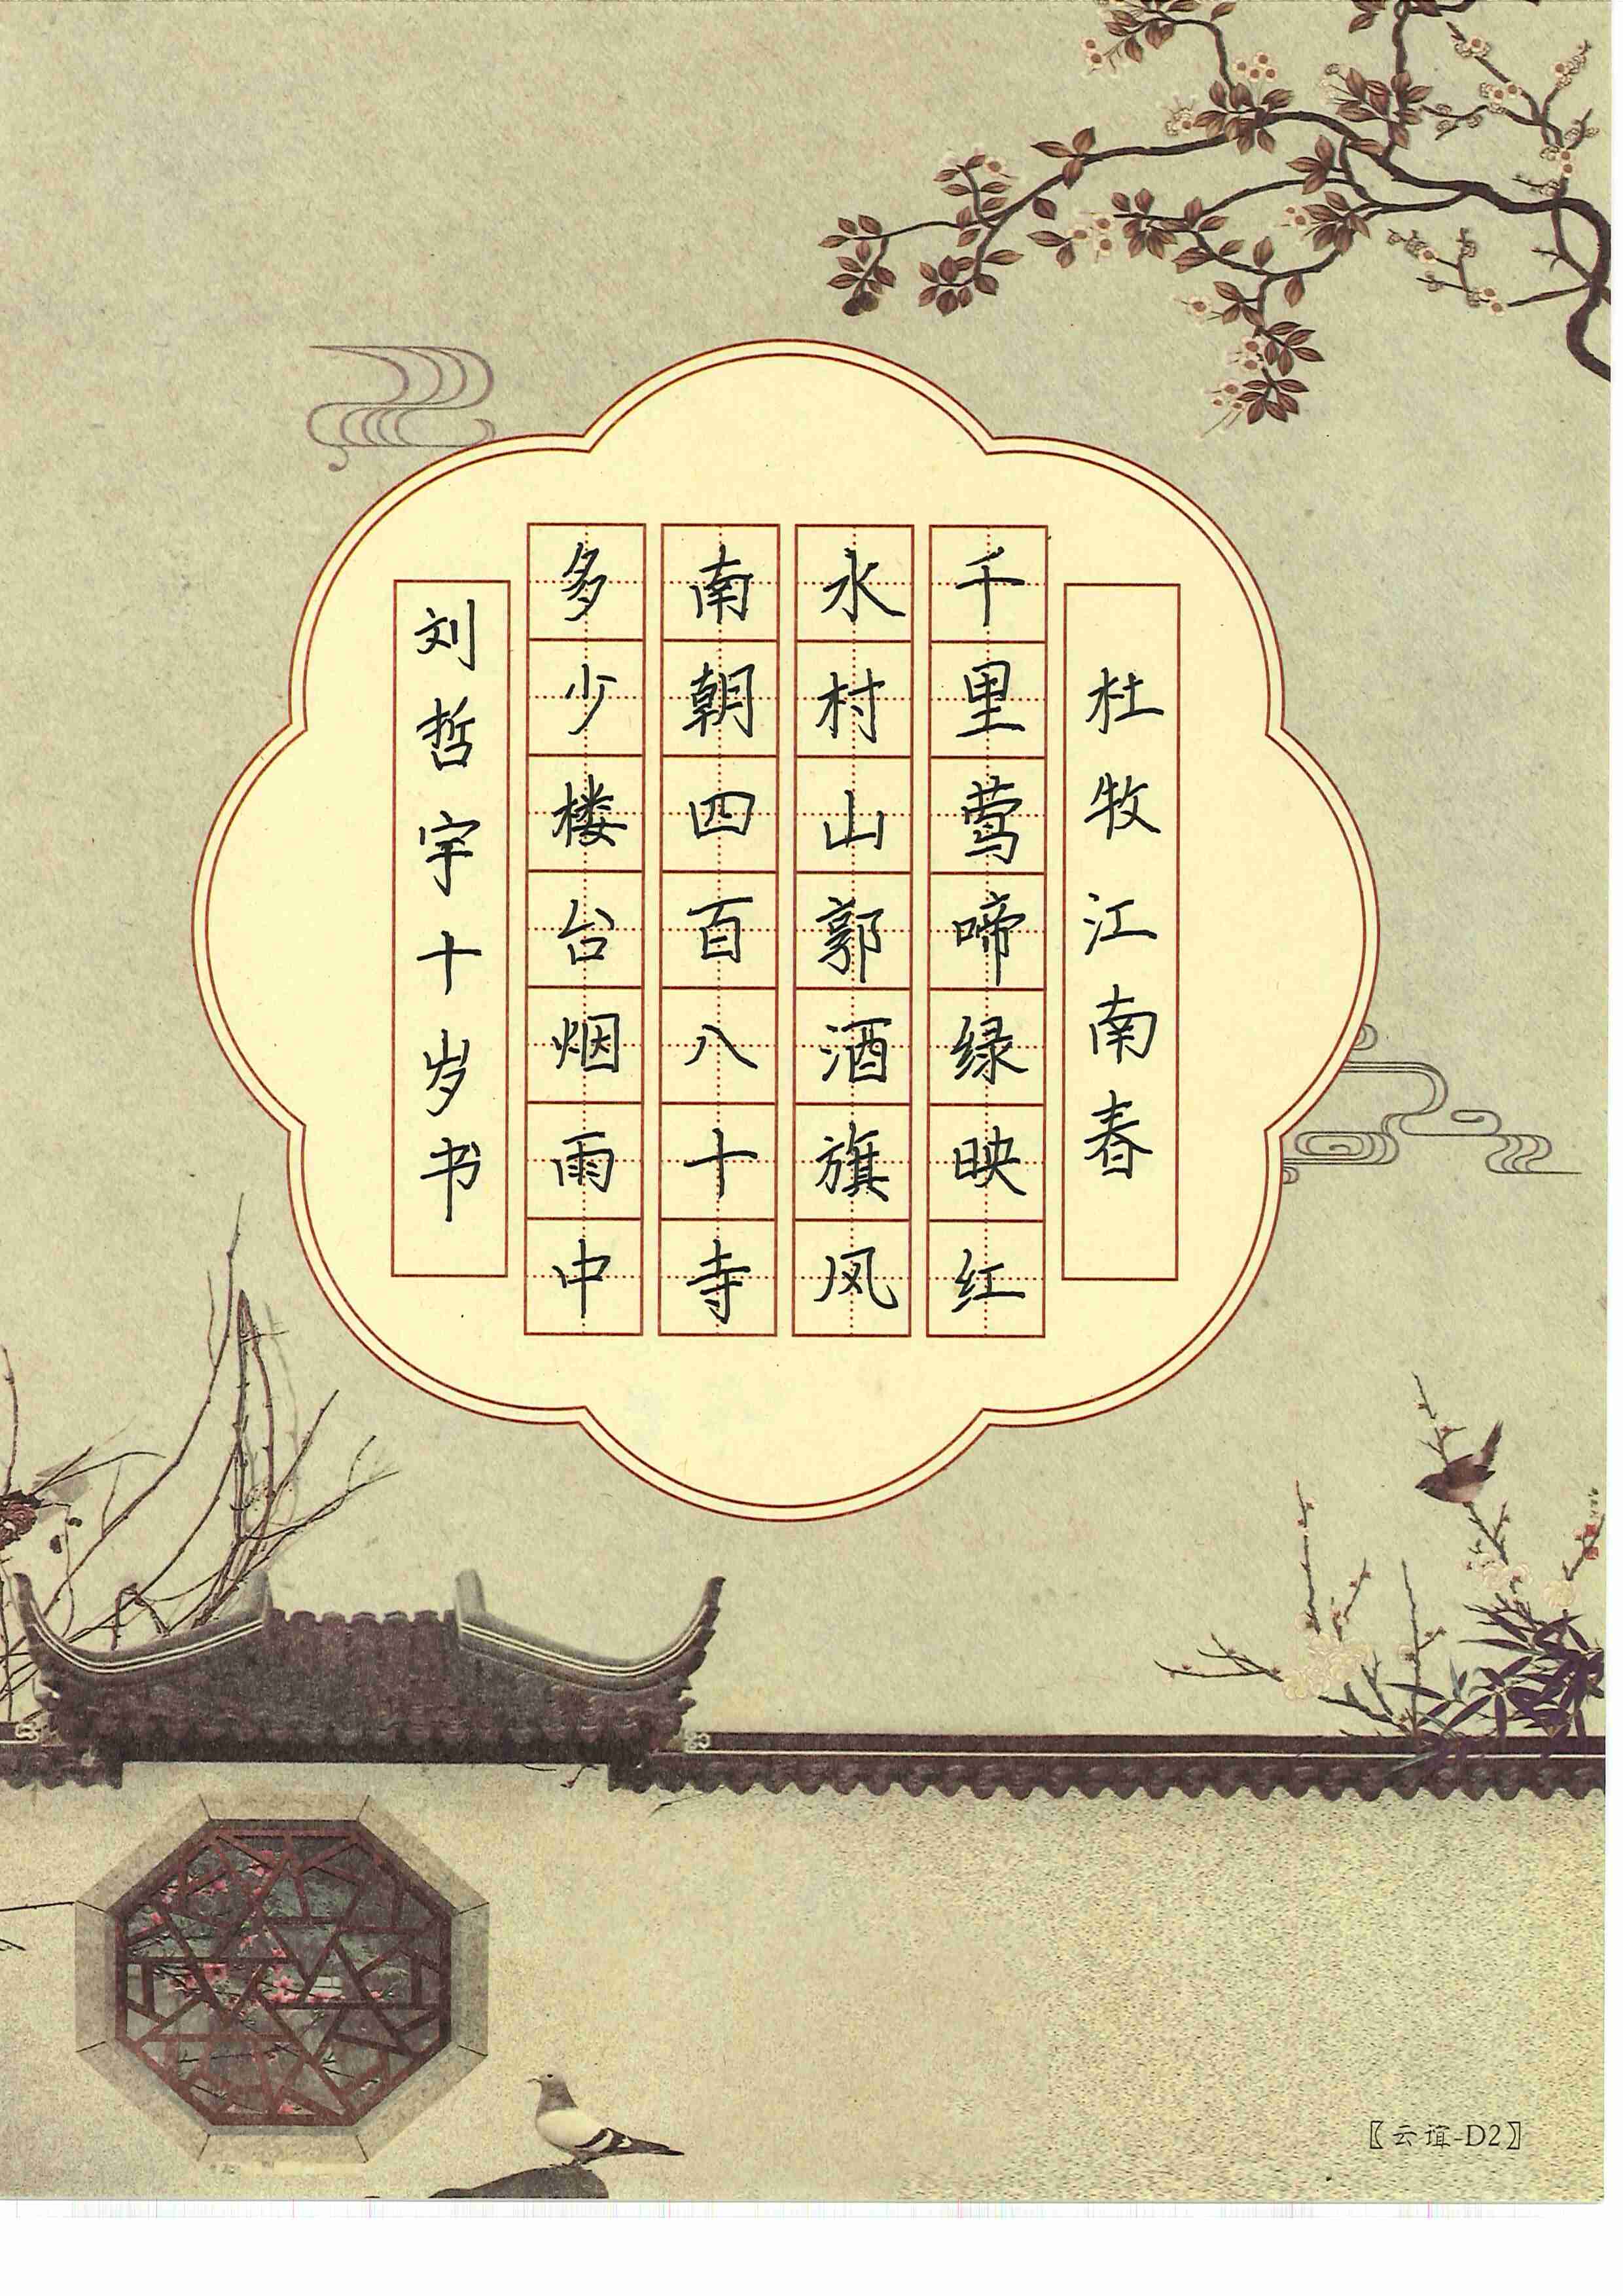 杜牧江南春
千里莺啼绿映红
水村山郭酒旗风
南朝四百八十寺
多少楼台烟雨中
刘哲宇十岁书
〖云谊-D2〗